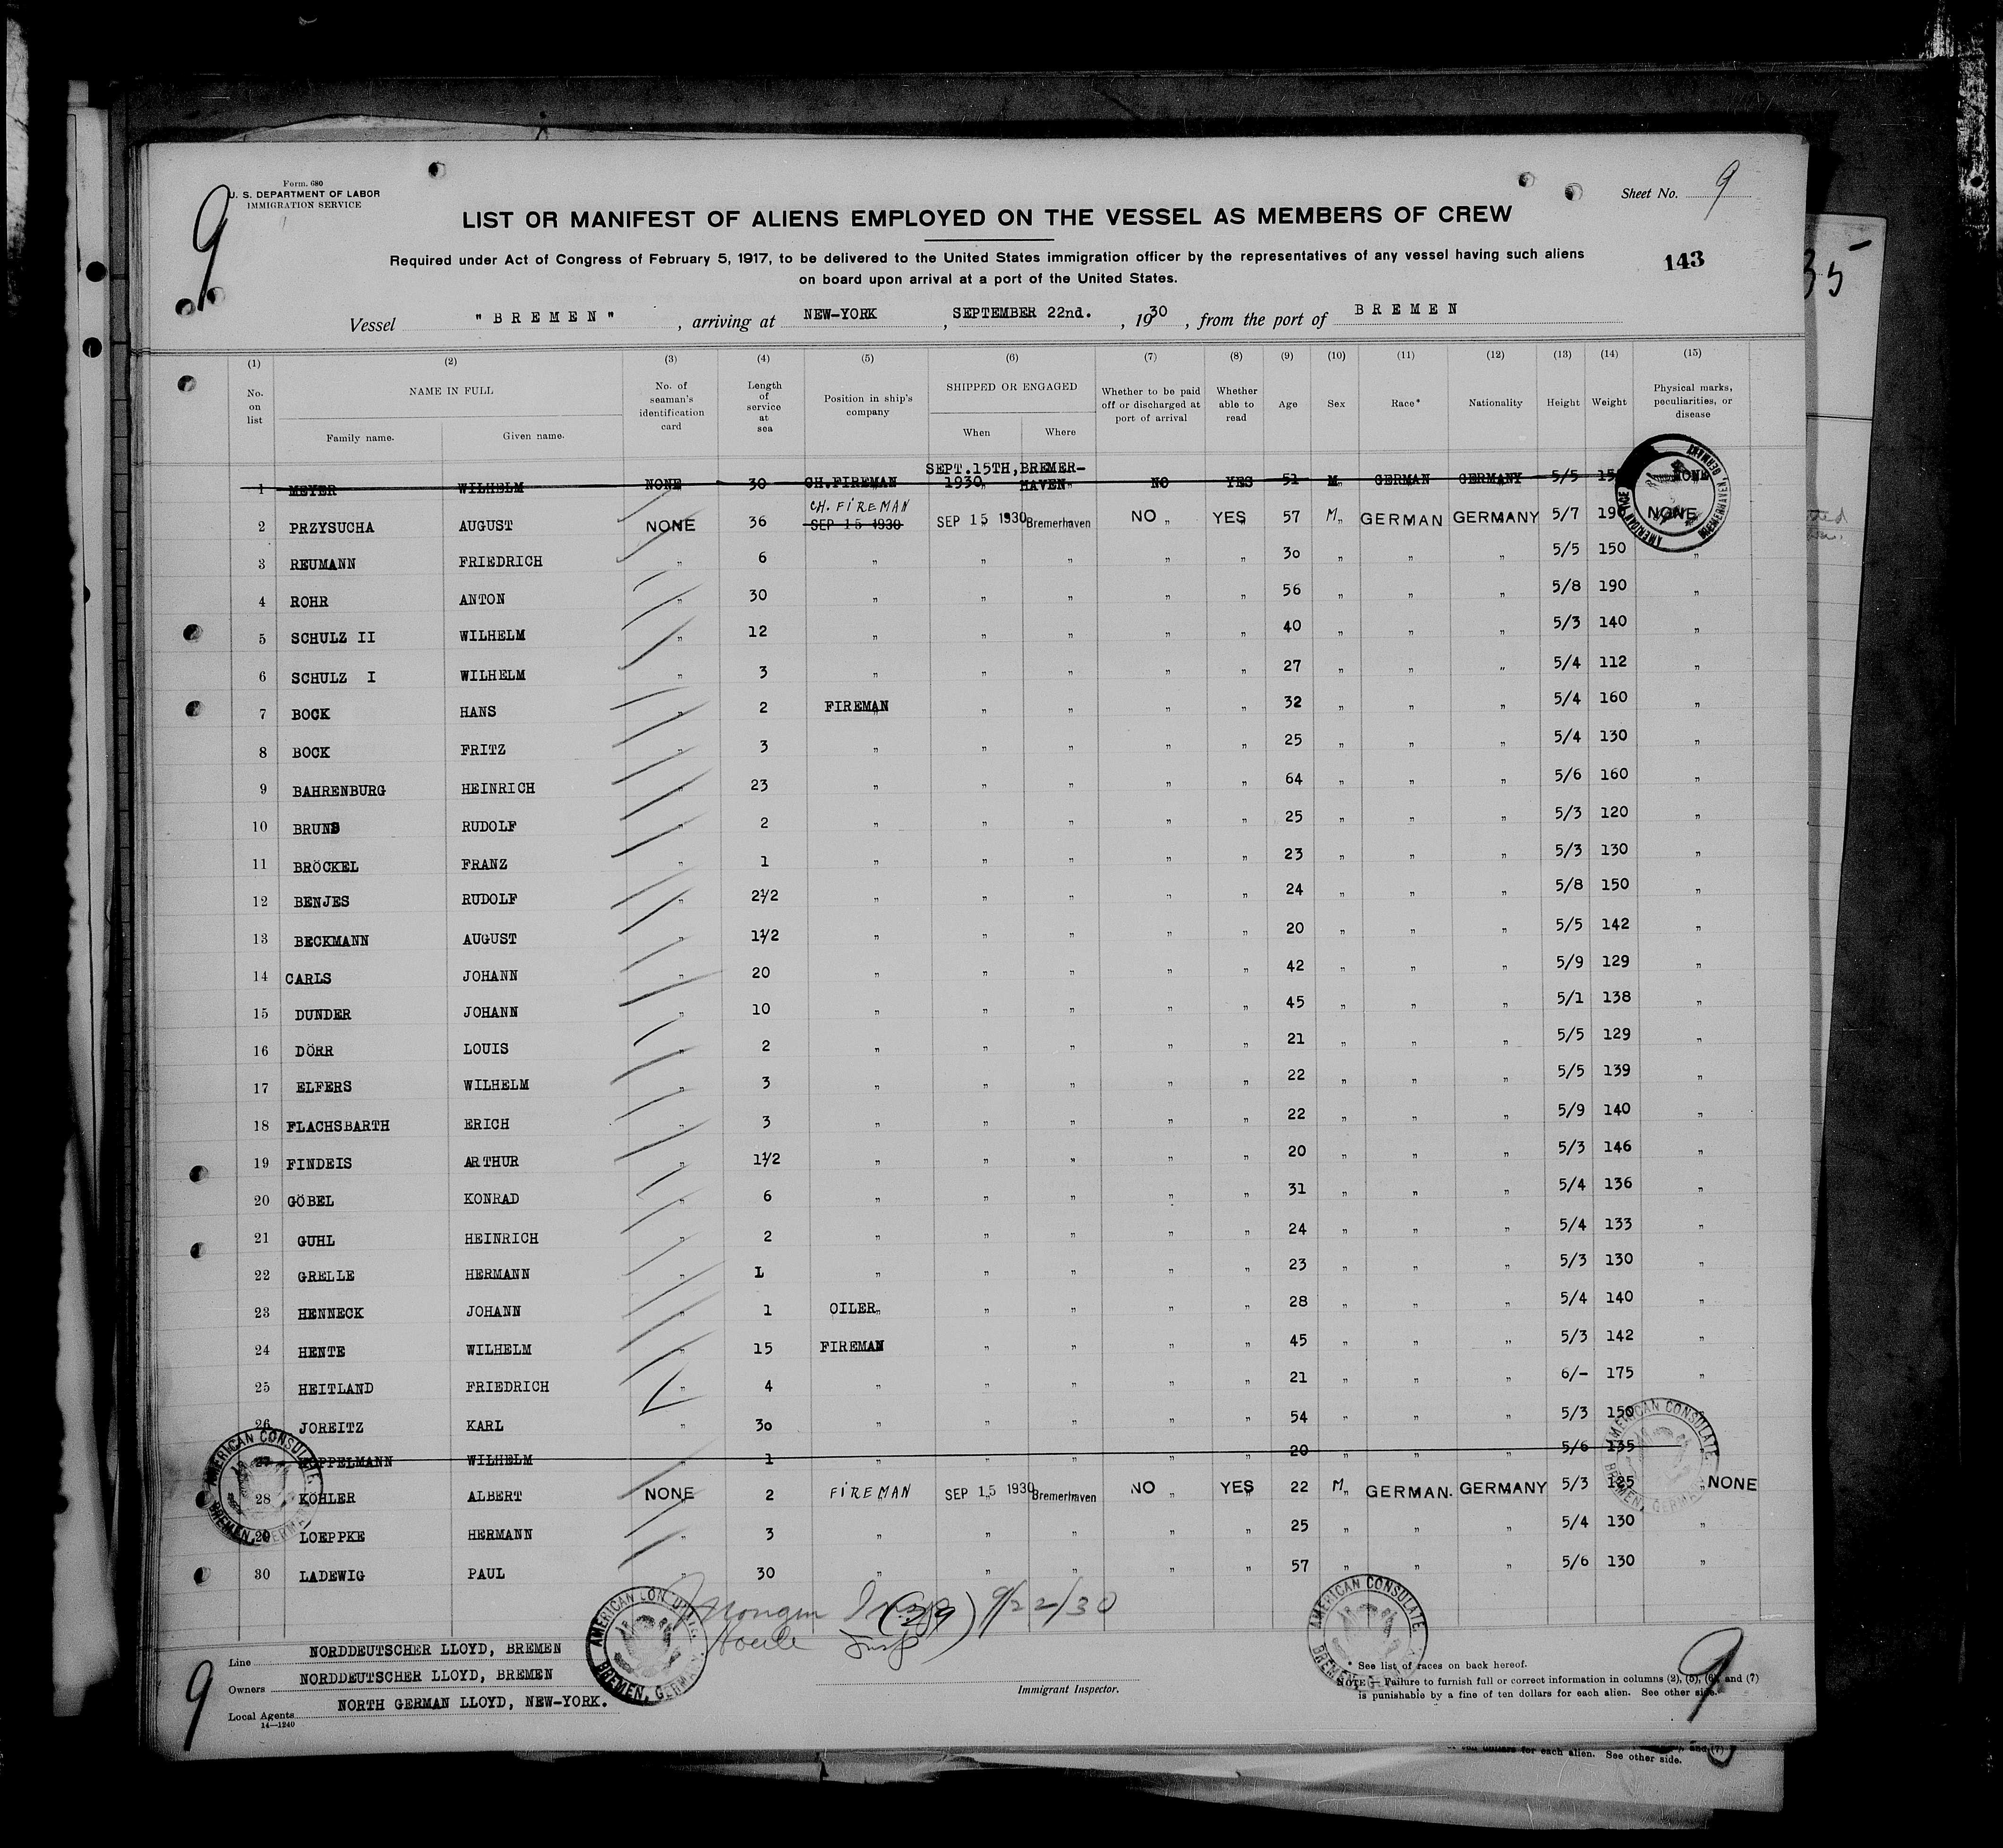 Form. 680
U. S. DEPARTMENT OF LABOR
IMMIGRATION SERVICE
9
Sheet No. 9
LIST OR MANIFEST OF ALIENS EMPLOYED ON THE VESSEL AS MEMBERS OF CREW
Required under Act of Congress of February 5, 1917, to be delivered to the United States immigration officer by the representatives of any vessel having such aliens
on board upon arrival at a port of the United States.
143
35
Vessel "BREMEN", arriving at NEW-YORK, SEPTEMBER 22nd., 1930, from the port of BREMEN
(1) (2) (3) (4) (5) (6) (7) (8) (9) (10) (11) (12) (13) (14) (15)
No. on list NAME IN FULL Family name. Given name. No. of seaman's identification card Length of service at sea Position in ship's company SHIPPED OR ENGAGED When Where Whether to be paid off or discharged at port of arrival Whether able to read Age Sex Race* Nationality Height Weight Physical marks, peculiarities, or disease
1 MEYER WILHELM NONE 30 CH.FIREMAN SEPT.15TH, 1930 BREMER-HAVEN NO YES 51 M GERMAN GERMANY 5/5 NONE
2 PRZYSUCHA AUGUST NONE 36 CH. FIREMAN SEP 15 1930 SEP 15 1930 Bremerhaven NO " YES 57 M " GERMAN GERMANY 5/7 190 NONE
3 REUMANN FRIEDRICH " 6 " " " " " 30 " " " 5/5 150 "
4 ROHR ANTON " 30 " " " " " 56 " " " 5/8 190 "
5 SCHULZ II WILHELM " 12 " " " " " 40 " " " 5/3 140 "
6 SCHULZ I WILHELM " 3 " " " " " 27 " " " 5/4 112 "
7 BOCK HANS " 2 FIREMAN " " " " 32 " " " 5/4 160 "
8 BOCK FRITZ " 3 " " " " " 25 " " " 5/4 130 "
9 BAHRENBURG HEINRICH " 23 " " " " " 64 " " " 5/6 160 "
10 BRUNS RUDOLF " 2 " " " " " 25 " " " 5/3 120 "
11 BRÖCKEL FRANZ " 1 " " " " " 23 " " " 5/3 130 "
12 BENJES RUDOLF " 2½ " " " " " 24 " " " 5/8 150 "
13 BECKMANN AUGUST " 1½ " " " " " 20 " " " 5/5 142 "
14 CARLS JOHANN " 20 " " " " " 42 " " " 5/9 129 "
15 DUNDER JOHANN " 10 " " " " " 45 " " " 5/1 138 "
16 DÖRR LOUIS " 2 " " " " " 21 " " " 5/5 129 "
17 ELFERS WILHELM " 3 " " " " " 22 " " " 5/5 139 "
18 FLACHSBARTH ERICH " 3 " " " " " 22 " " " 5/9 140 "
19 FINDEIS ARTHUR " 1½ " " " " " 20 " " " 5/3 146 "
20 GÖBEL KONRAD " 6 " " " " " 31 " " " 5/4 136 "
21 GUHL HEINRICH " 2 " " " " " 24 " " " 5/4 133 "
22 GRELLE HERMANN " L " " " " " 23 " " " 5/3 130 "
23 HENNECK JOHANN " 1 OILER " " " " 28 " " " 5/4 140 "
24 HENTE WILHELM " 15 FIREMAN " " " " 45 " " " 5/3 142 "
25 HEITLAND FRIEDRICH " 4 " " " " " 21 " " " 6/- 175 "
26 JOREITZ KARL " 30 " " " " " 54 " " " 5/3 150 "
27 KOPPELMANN WILHELM " 1 " " " " " 20 " " " 5/6 135 "
28 KÖHLER ALBERT NONE 2 FIREMAN SEP 15 1930 Bremerhaven NO " YES 22 M " GERMAN. GERMANY 5/3 125 " NONE
29 LOEPPKE HERMANN " 3 " " " " " 25 " " " 5/4 130 "
30 LADEWIG PAUL " 30 " " " " " 57 " " " 5/6 130 "
AMERICAN CONSULATE BREMEN, GERMANY
(29) 9/22/30
Insp
Line NORDDEUTSCHER LLOYD, BREMEN
Owners NORDDEUTSCHER LLOYD, BREMEN
Local Agents NORTH GERMAN LLOYD, NEW-YORK.
14—1240
Immigrant Inspector.
* See list of races on back hereof.
NOTE.—Failure to furnish full or correct information in columns (2), (5), (6), and (7)
is punishable by a fine of ten dollars for each alien. See other side.
9
9
dollars for each alien. See other side.